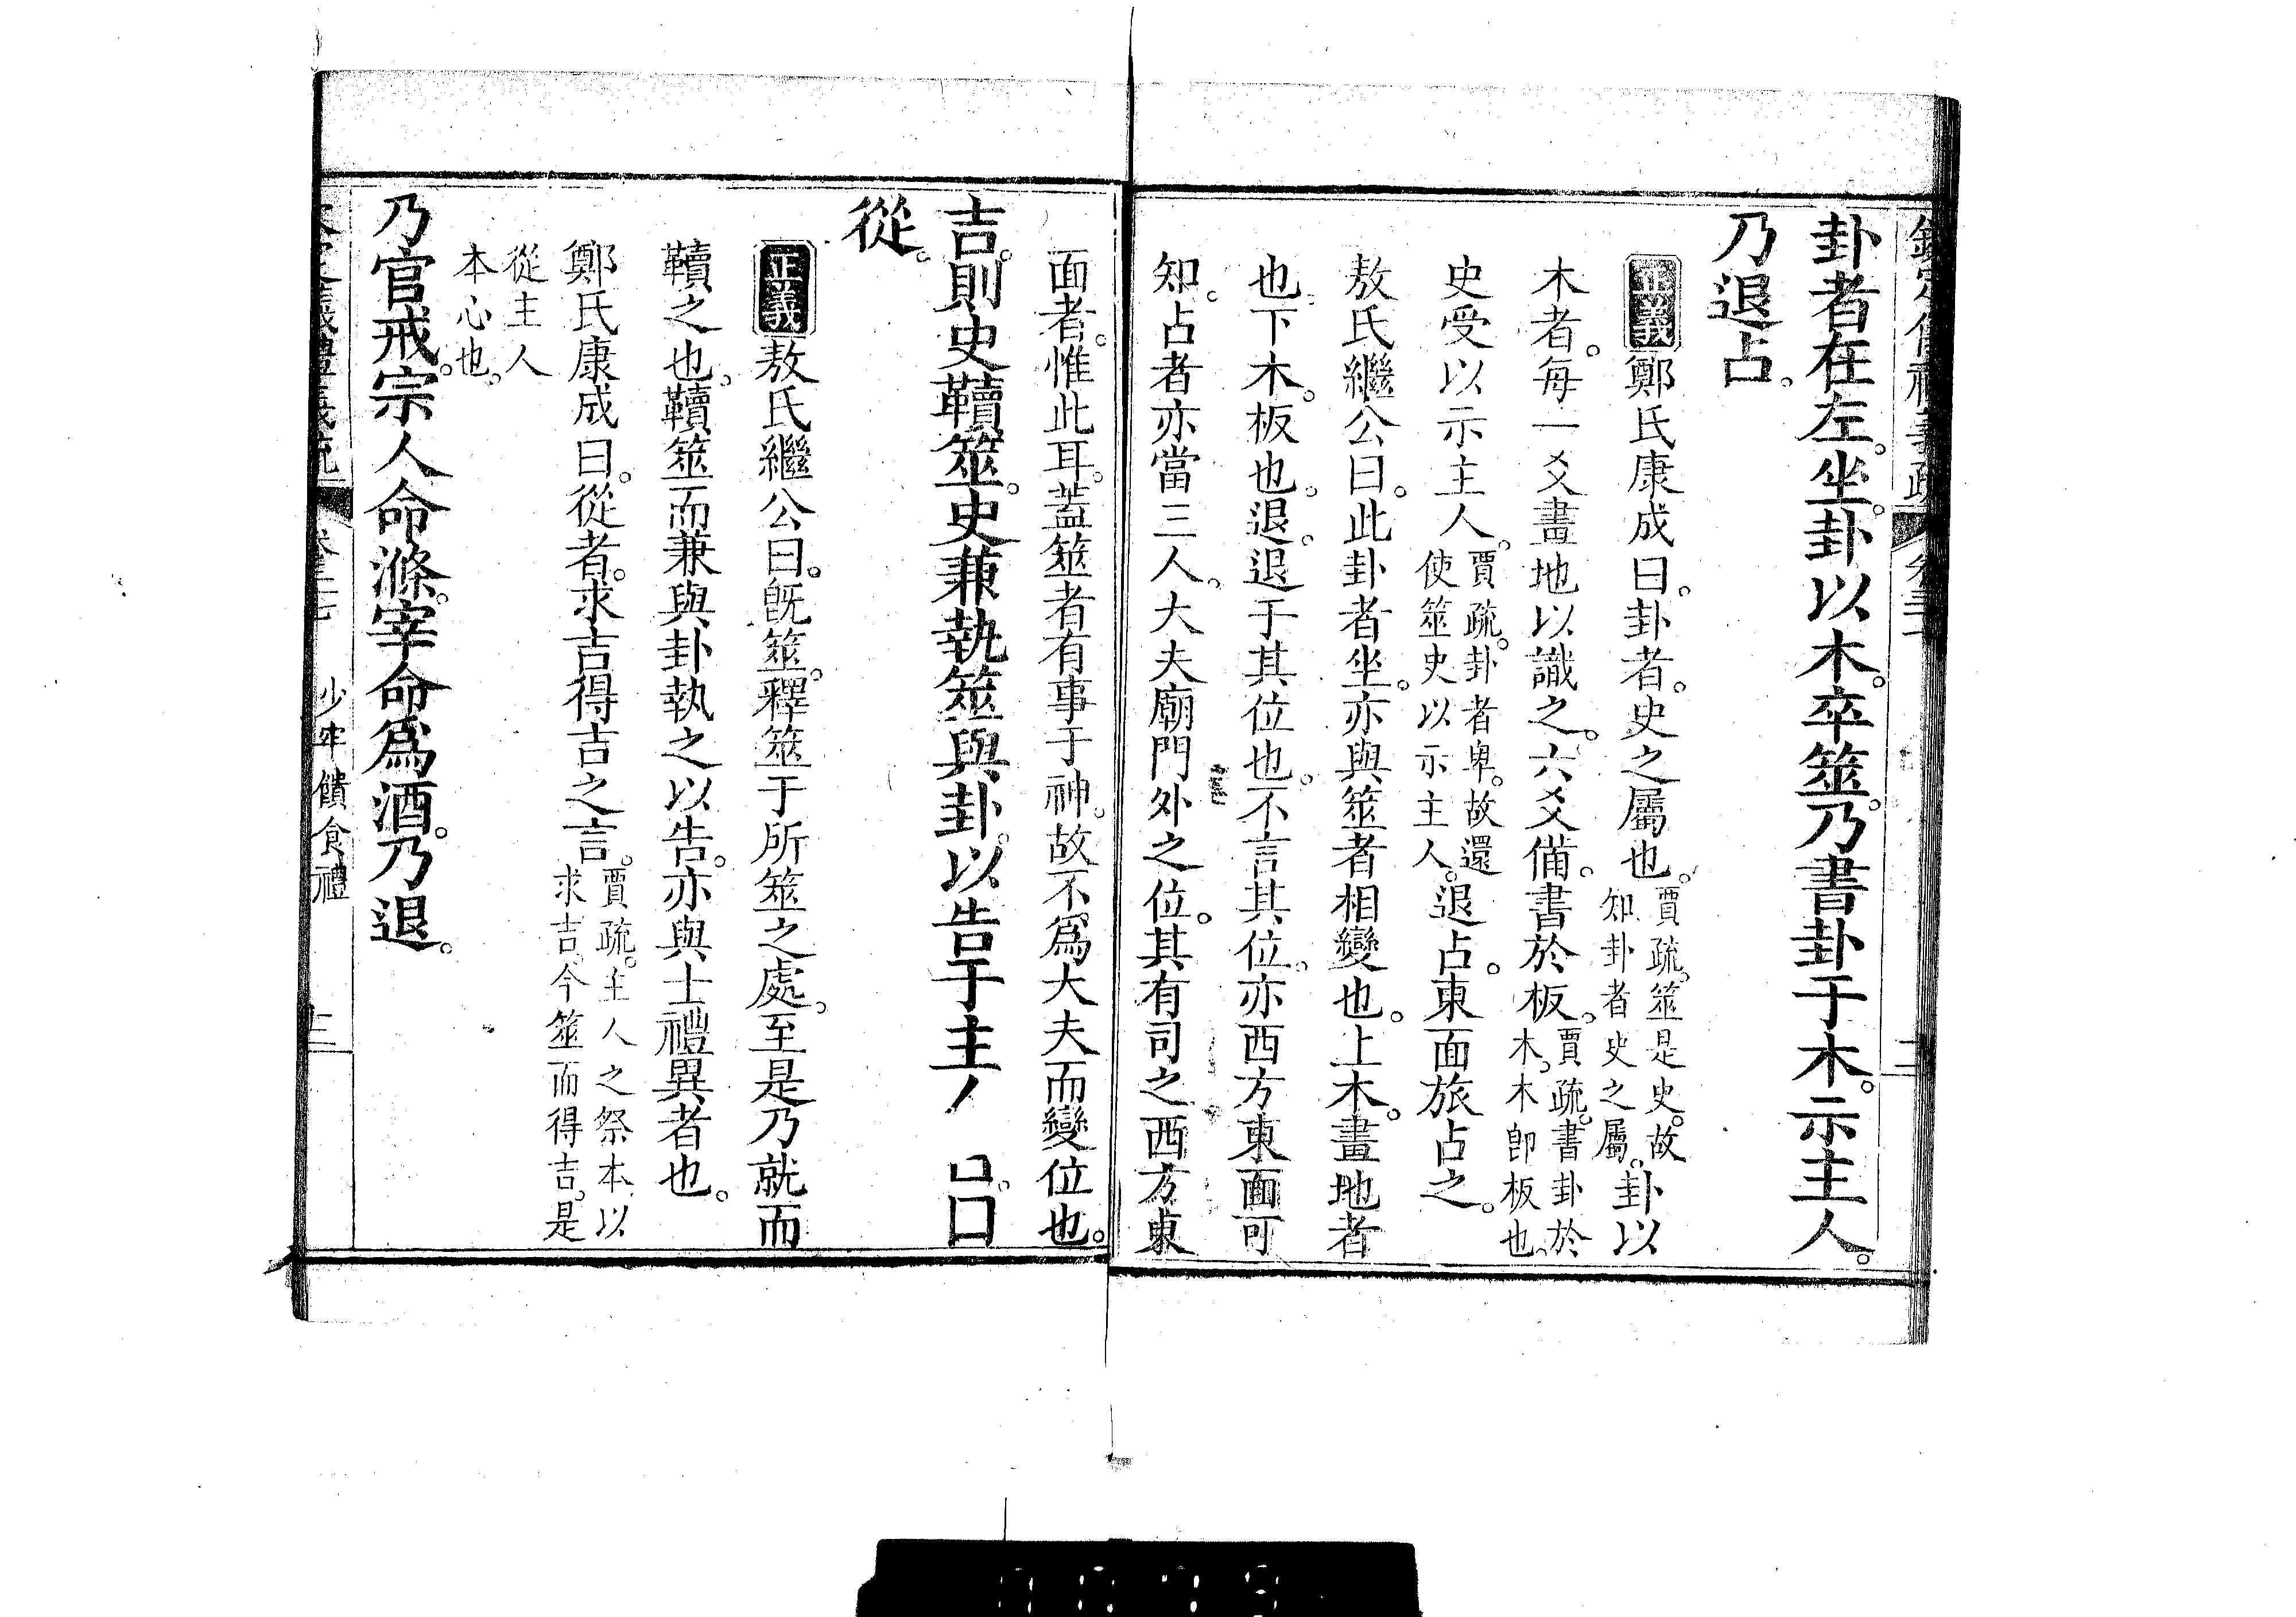 卦者在左。坐。卦以木。卒筮。乃書卦于木。示主人。
乃退占。
正義鄭氏康成曰。卦者。史之屬也。賈疏。筮是史。故知卦者史之屬。卦以
木者。每一爻畫地以識之。六爻備。書於板。賈疏。書卦於木。木卽板也。
史受以示主人。賈疏。卦者卑。故還使筮史以示主人。退占。東面旅占之。
敖氏繼公曰。此卦者坐。亦與筮者相變也。上木。畫地者
也。下木。板也。退。退于其位也。不言其位。亦西方東面可
知。占者亦當三人。大夫廟門外之位。其有司之西方東
面者。惟此耳。蓋筮者有事于神。故不爲大夫而變位也。
吉。則史韇筮。史兼執筮與卦。以告于主
從。
正義敖氏繼公曰。旣筮。釋筮于所筮之處。至是乃就而
韇之也。韇筮而兼與卦執之以告。亦與士禮異者也。
鄭氏康成曰。從者。求吉得吉之言。賈疏。主人之祭本以求吉。今筮而得吉。是
從主人本心也。
乃官戒。宗人命滌。宰命爲酒。乃退。
少牢饋食禮
三